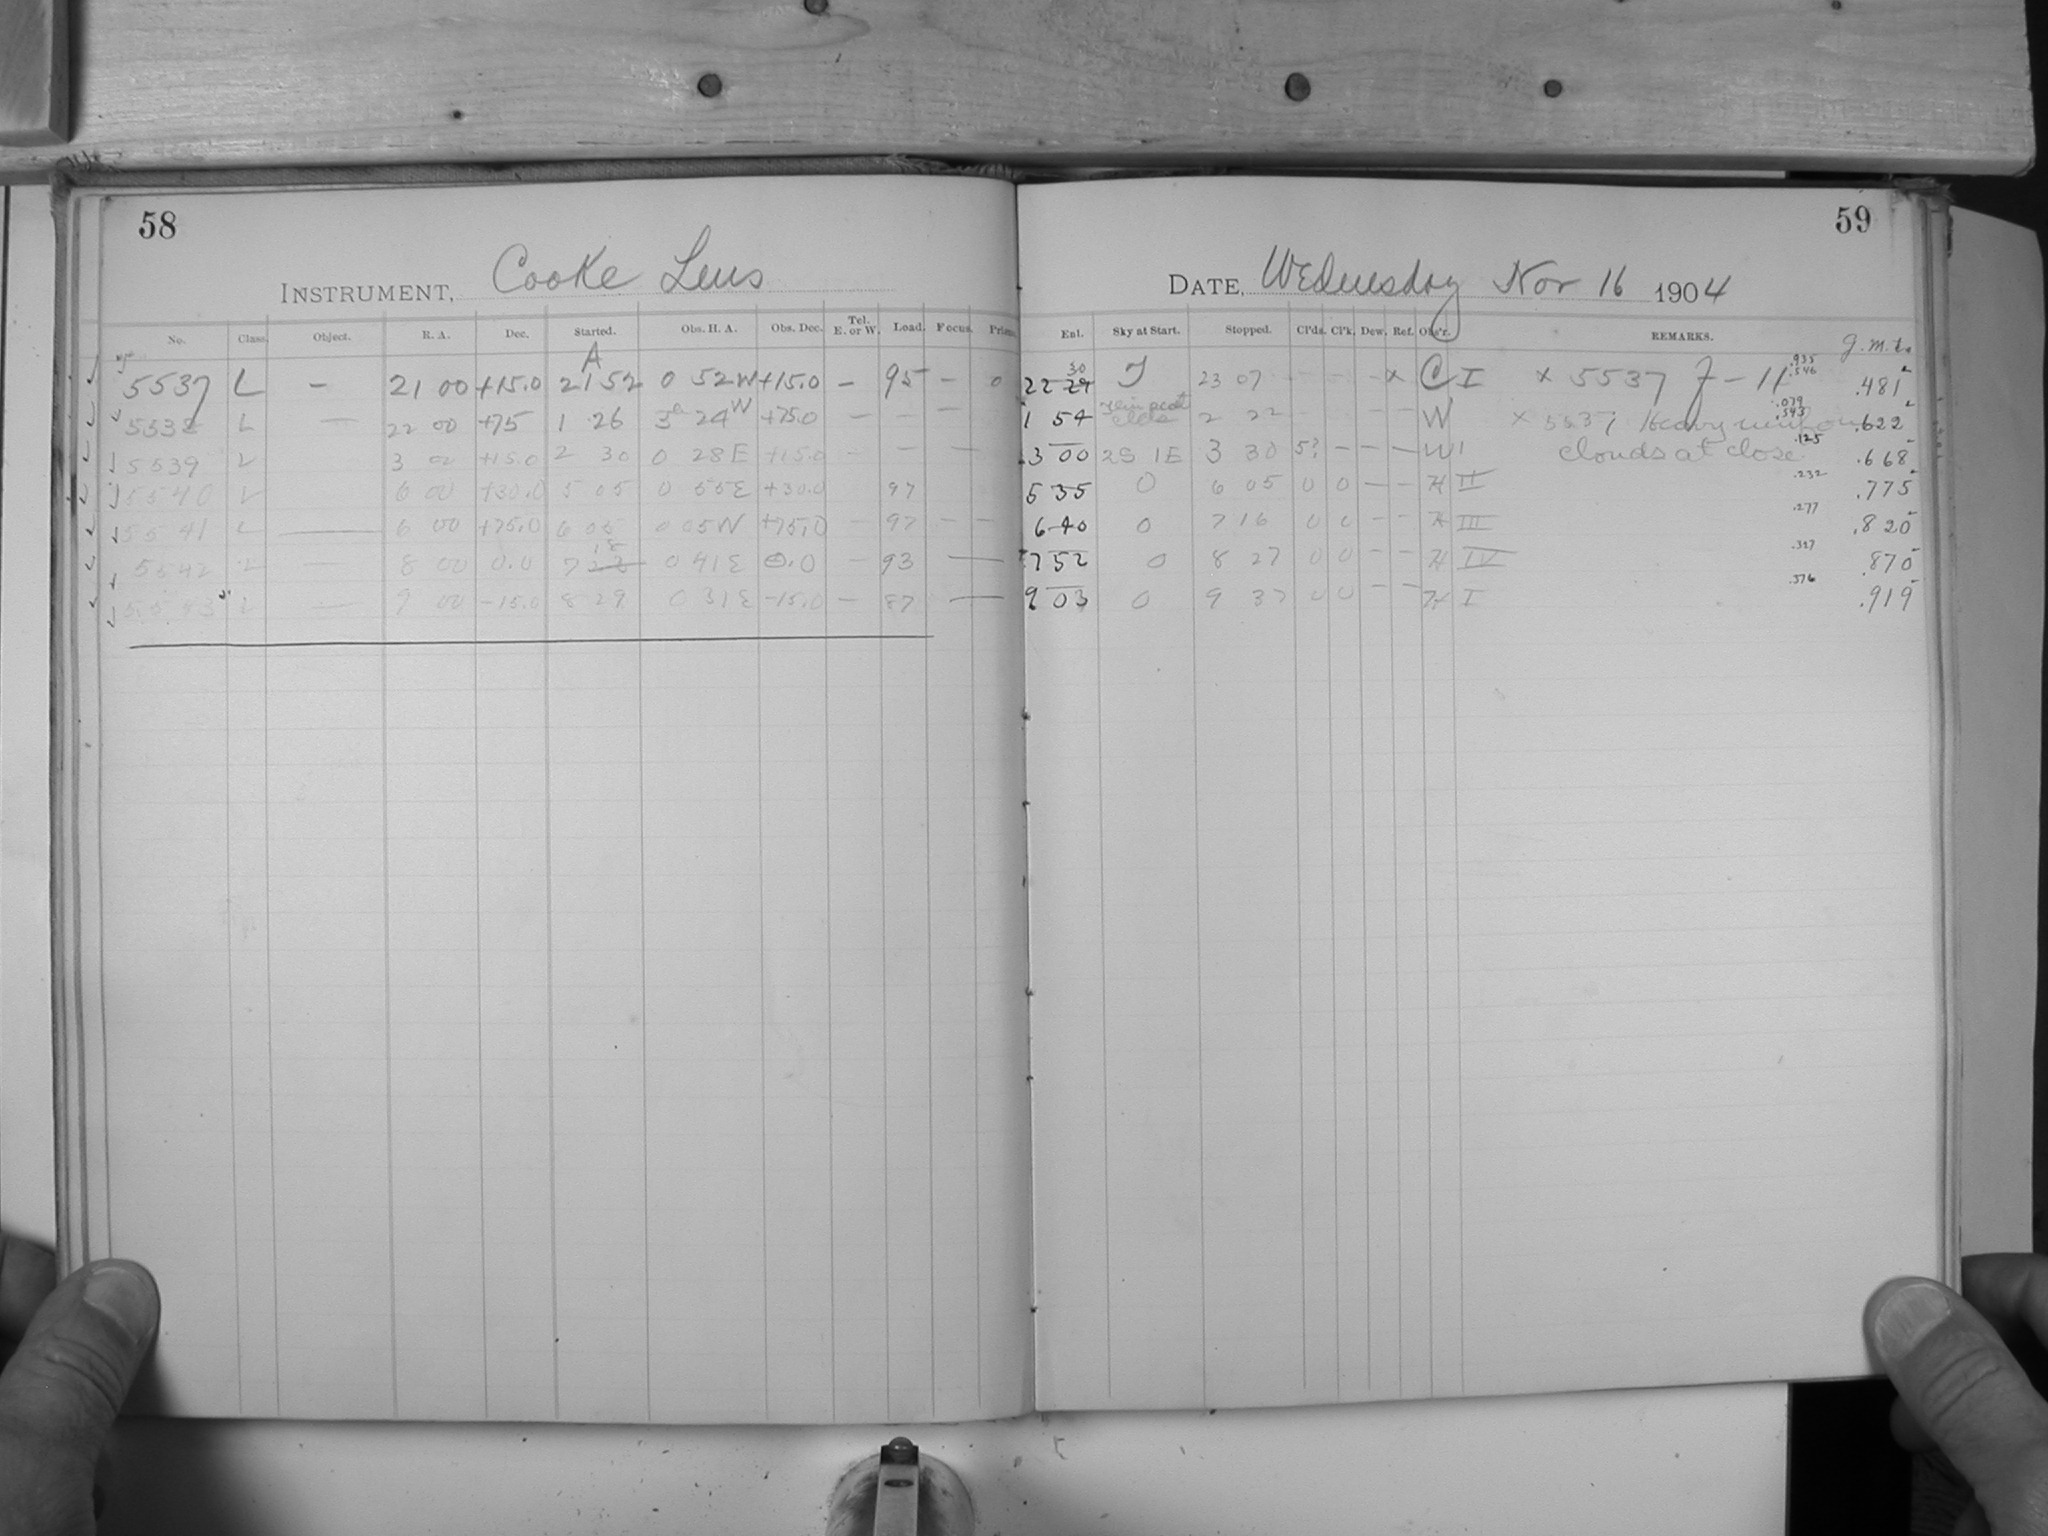 58
INSTRUMENT, Cooke Lens
No. Class. Object. R. A. Dec. Started. Obs. H. A. Obs. Dec. Tel. E. or W. Load. Focus. Prism.
A
5537 L — 21 00 +15.0 21 52 0 52 W +15.0 — 95 — 0
5538 L — 22 00 +75 1 26 3 24 W +75.0 — — —
5539 L 3 00 +15.0 2 30 0 28 E +15.0 — — — —
5540 L 6 00 +30.0 5 05 0 55 E +30.0 97
5541 L — 6 00 +75.0 6 05 0 05 W +75.0 — 97 — —
5542 L — 8 00 0.0 7 18 0 41 E 0.0 — 93 —
5543 L — 9 00 -15.0 8 29 0 31 E -15.0 — 87 —
59
DATE, Wednesday Nov 16 1904
Ent. Sky at Start. Stopped. Cl'ds. Cl'k. Dew. Ref. Obs'r. REMARKS. g.m.t.
22 29 30 23 07 — — — x C I x 5537 J-11 .935 .546 .481
1 54 clds 2 22 W x 5537 Heavy .079 .543 .622
3 00 2S 1E 3 30 5? — — — W I clouds at close .125 .668
5 35 0 6 05 0 0 — — H II .232 .775
6 40 0 7 16 0 0 — — H III .277 .820
7 52 0 8 27 0 0 — — H IV .327 .870
9 03 0 9 37 0 0 — — H I .376 .919